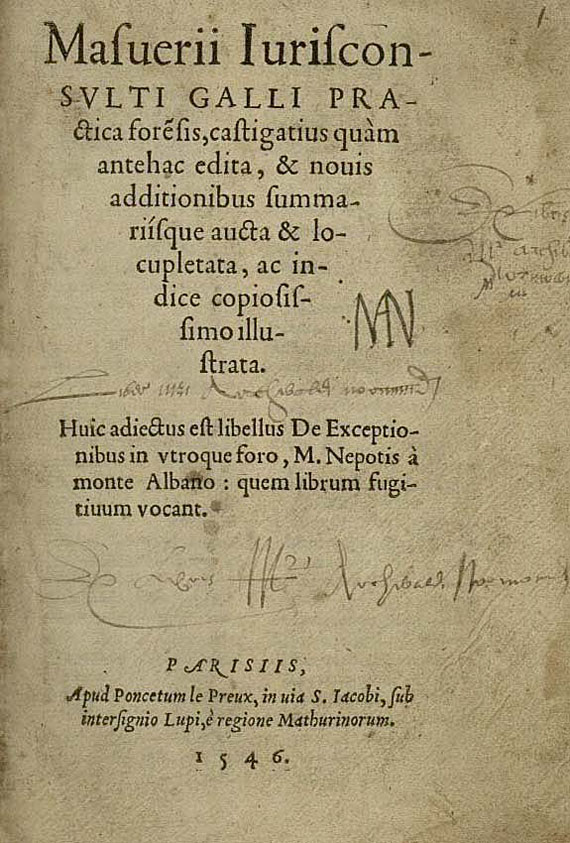 1
Maſuerii Iuriſcon-
SVLTI GALLI PRA-
ctica forẽſis,caſtigatius quàm
antehac edita, & nouis
additionibus ſumma-
riíſque aucta & lo-
cupletata, ac in-
dice copioſiſ-
ſimo illu-
ſtrata.
Liber Archibaldi
Huic adiectus eſt libellus De Exceptio-
nibus in vtroque foro, M. Nepotis à
monte Albano : quem librum fugi-
tiuum vocant.
Archibald
PARISIIS,
Apud Poncetum le Preux, in uia S. Iacobi, ſub
interſignio Lupi,è regione Mathurinorum.
1546.